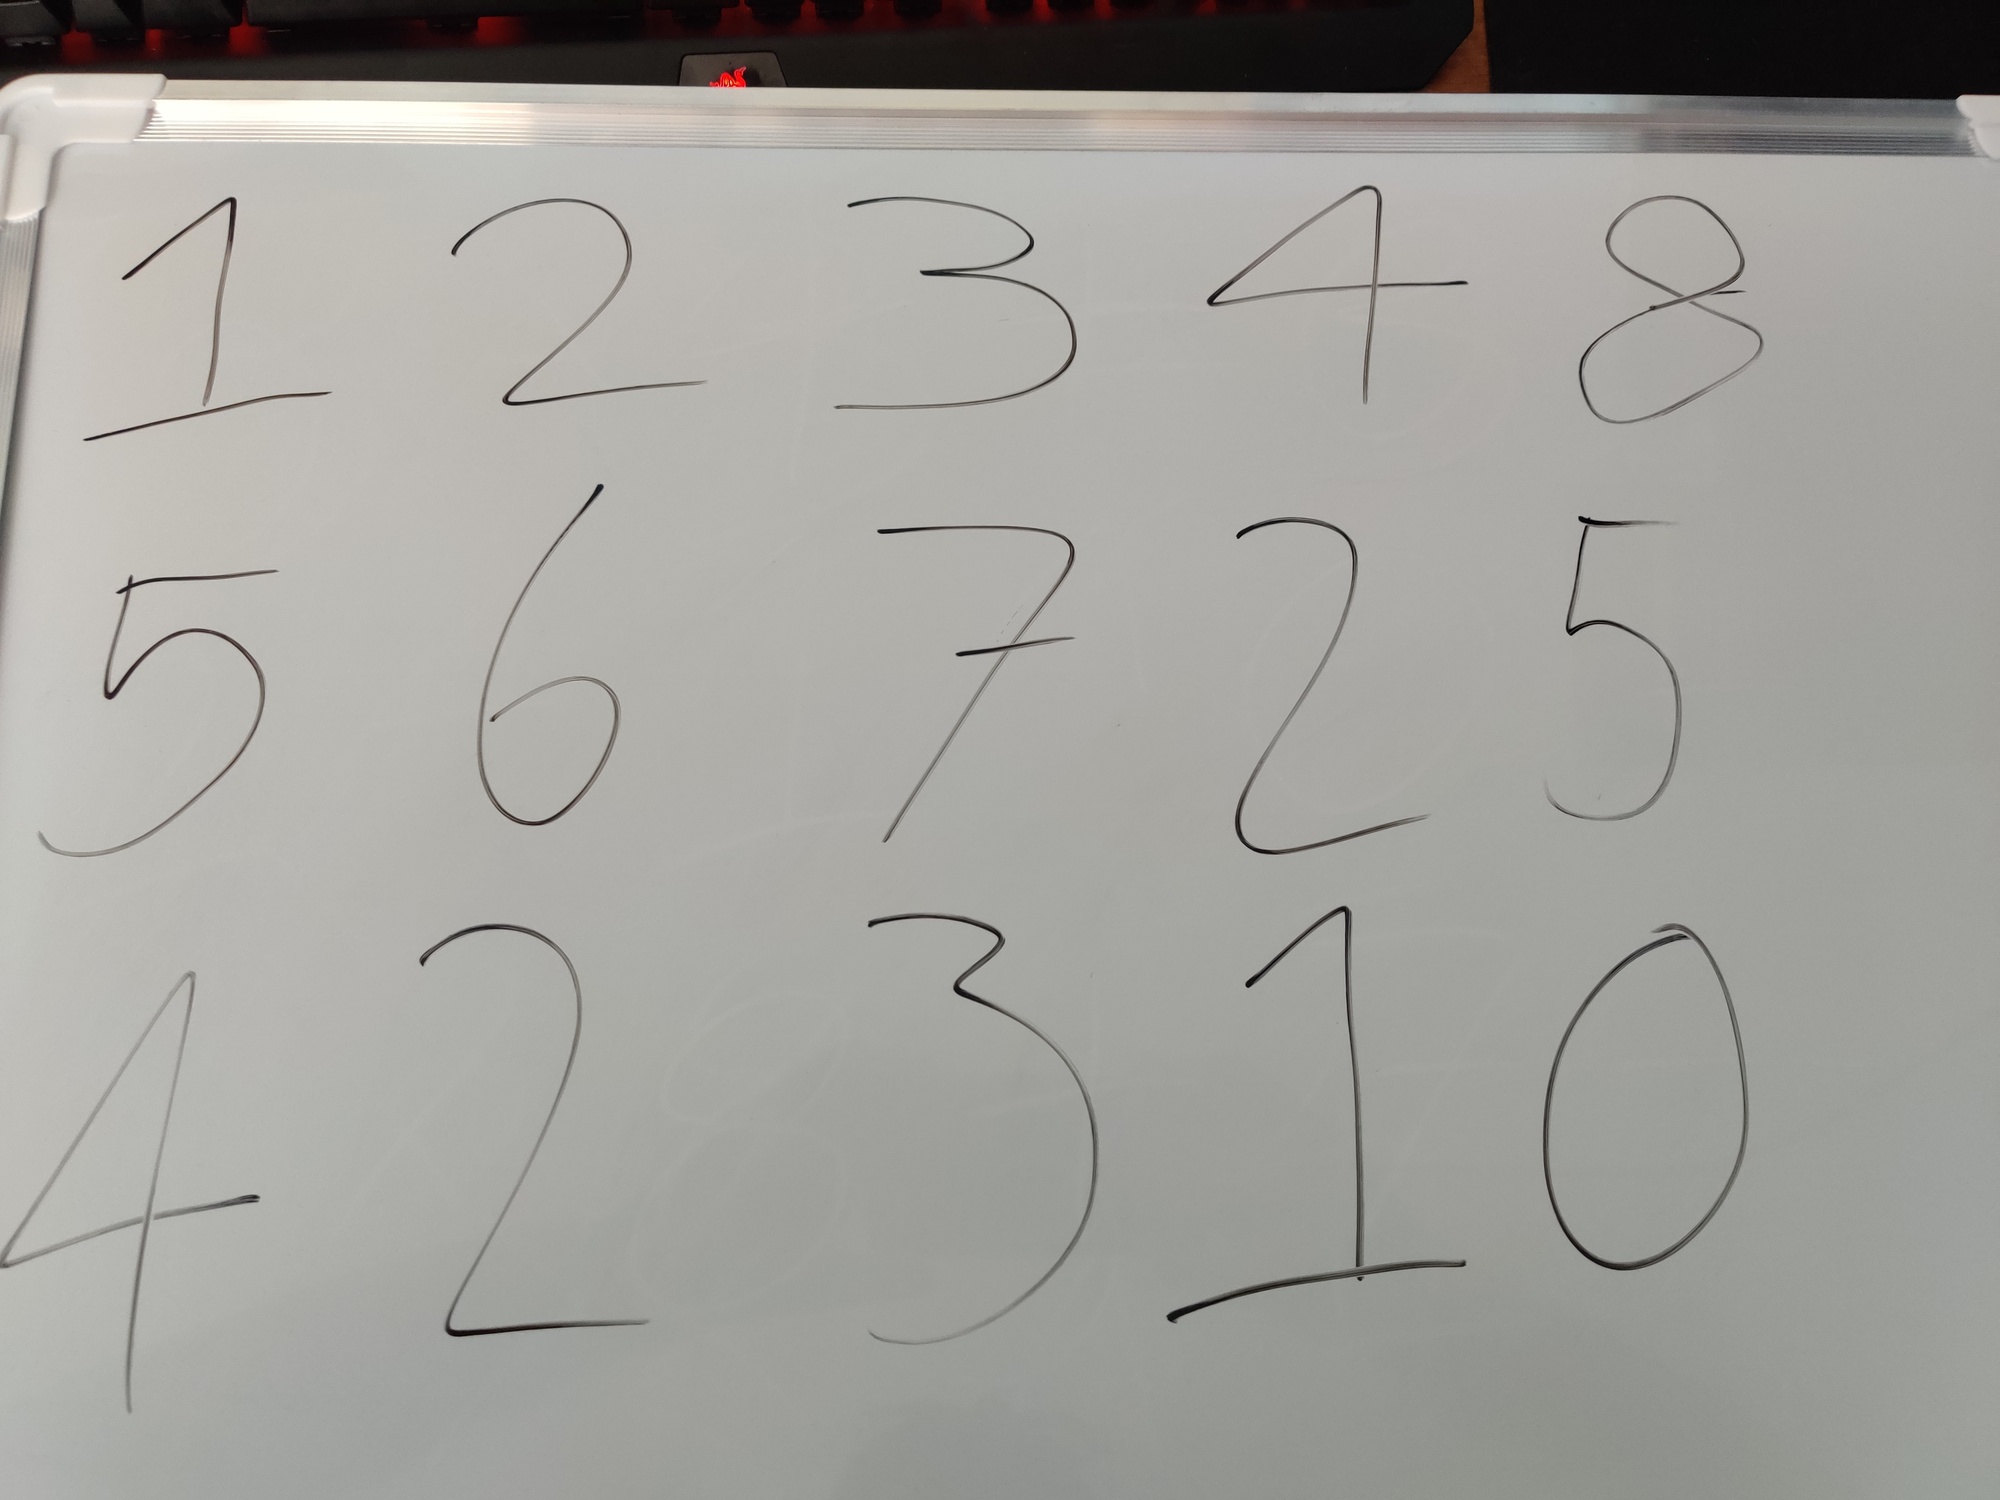 1 2 3 4 8
5 6 7 2 5
4 2 3 1 0